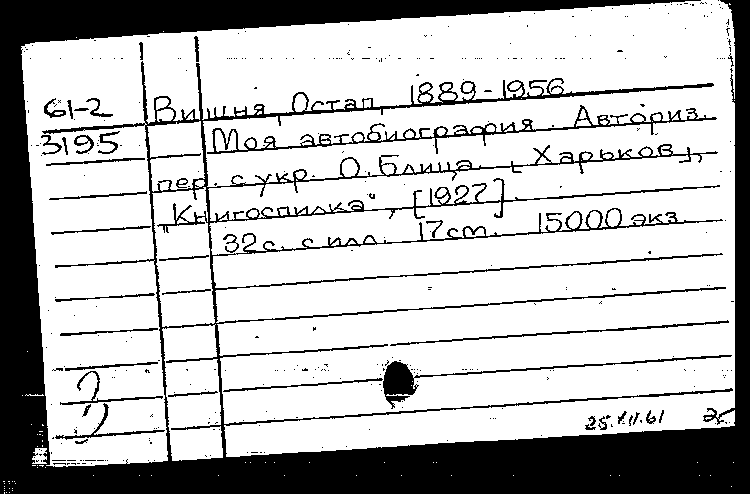 61-2 Вишня, Остап, 1889-1956.
3195 Моя автобиография. Авториз.
пер. с укр. О. Блица. [Харьков],
"Книгоспилка", [1927].
32 с. с илл. 17 cm. 15000 экз.